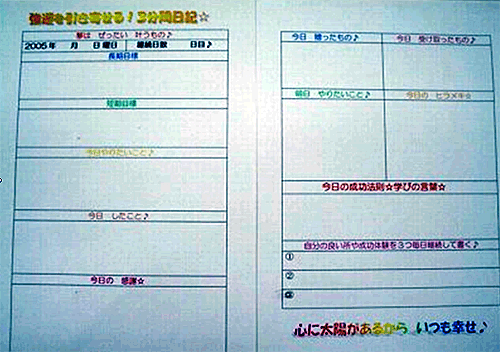 強運を引き寄せる！3分間日記☆
夢は ぜったい 叶うもの♪
2005年 月 日 曜日 継続日数 日目♪
長期目標
短期目標
今日やりたいこと♪
今日 したこと♪
今日の 感謝☆
今日 贈ったもの♪
今日 受け取ったもの♪
明日 やりたいこと♪
今日の ヒラメキ☆
今日の成功法則☆学びの言葉☆
自分の良い所や成功体験を3つ毎日継続して書く♪
①
②
③
心に太陽があるから いつも幸せ♪